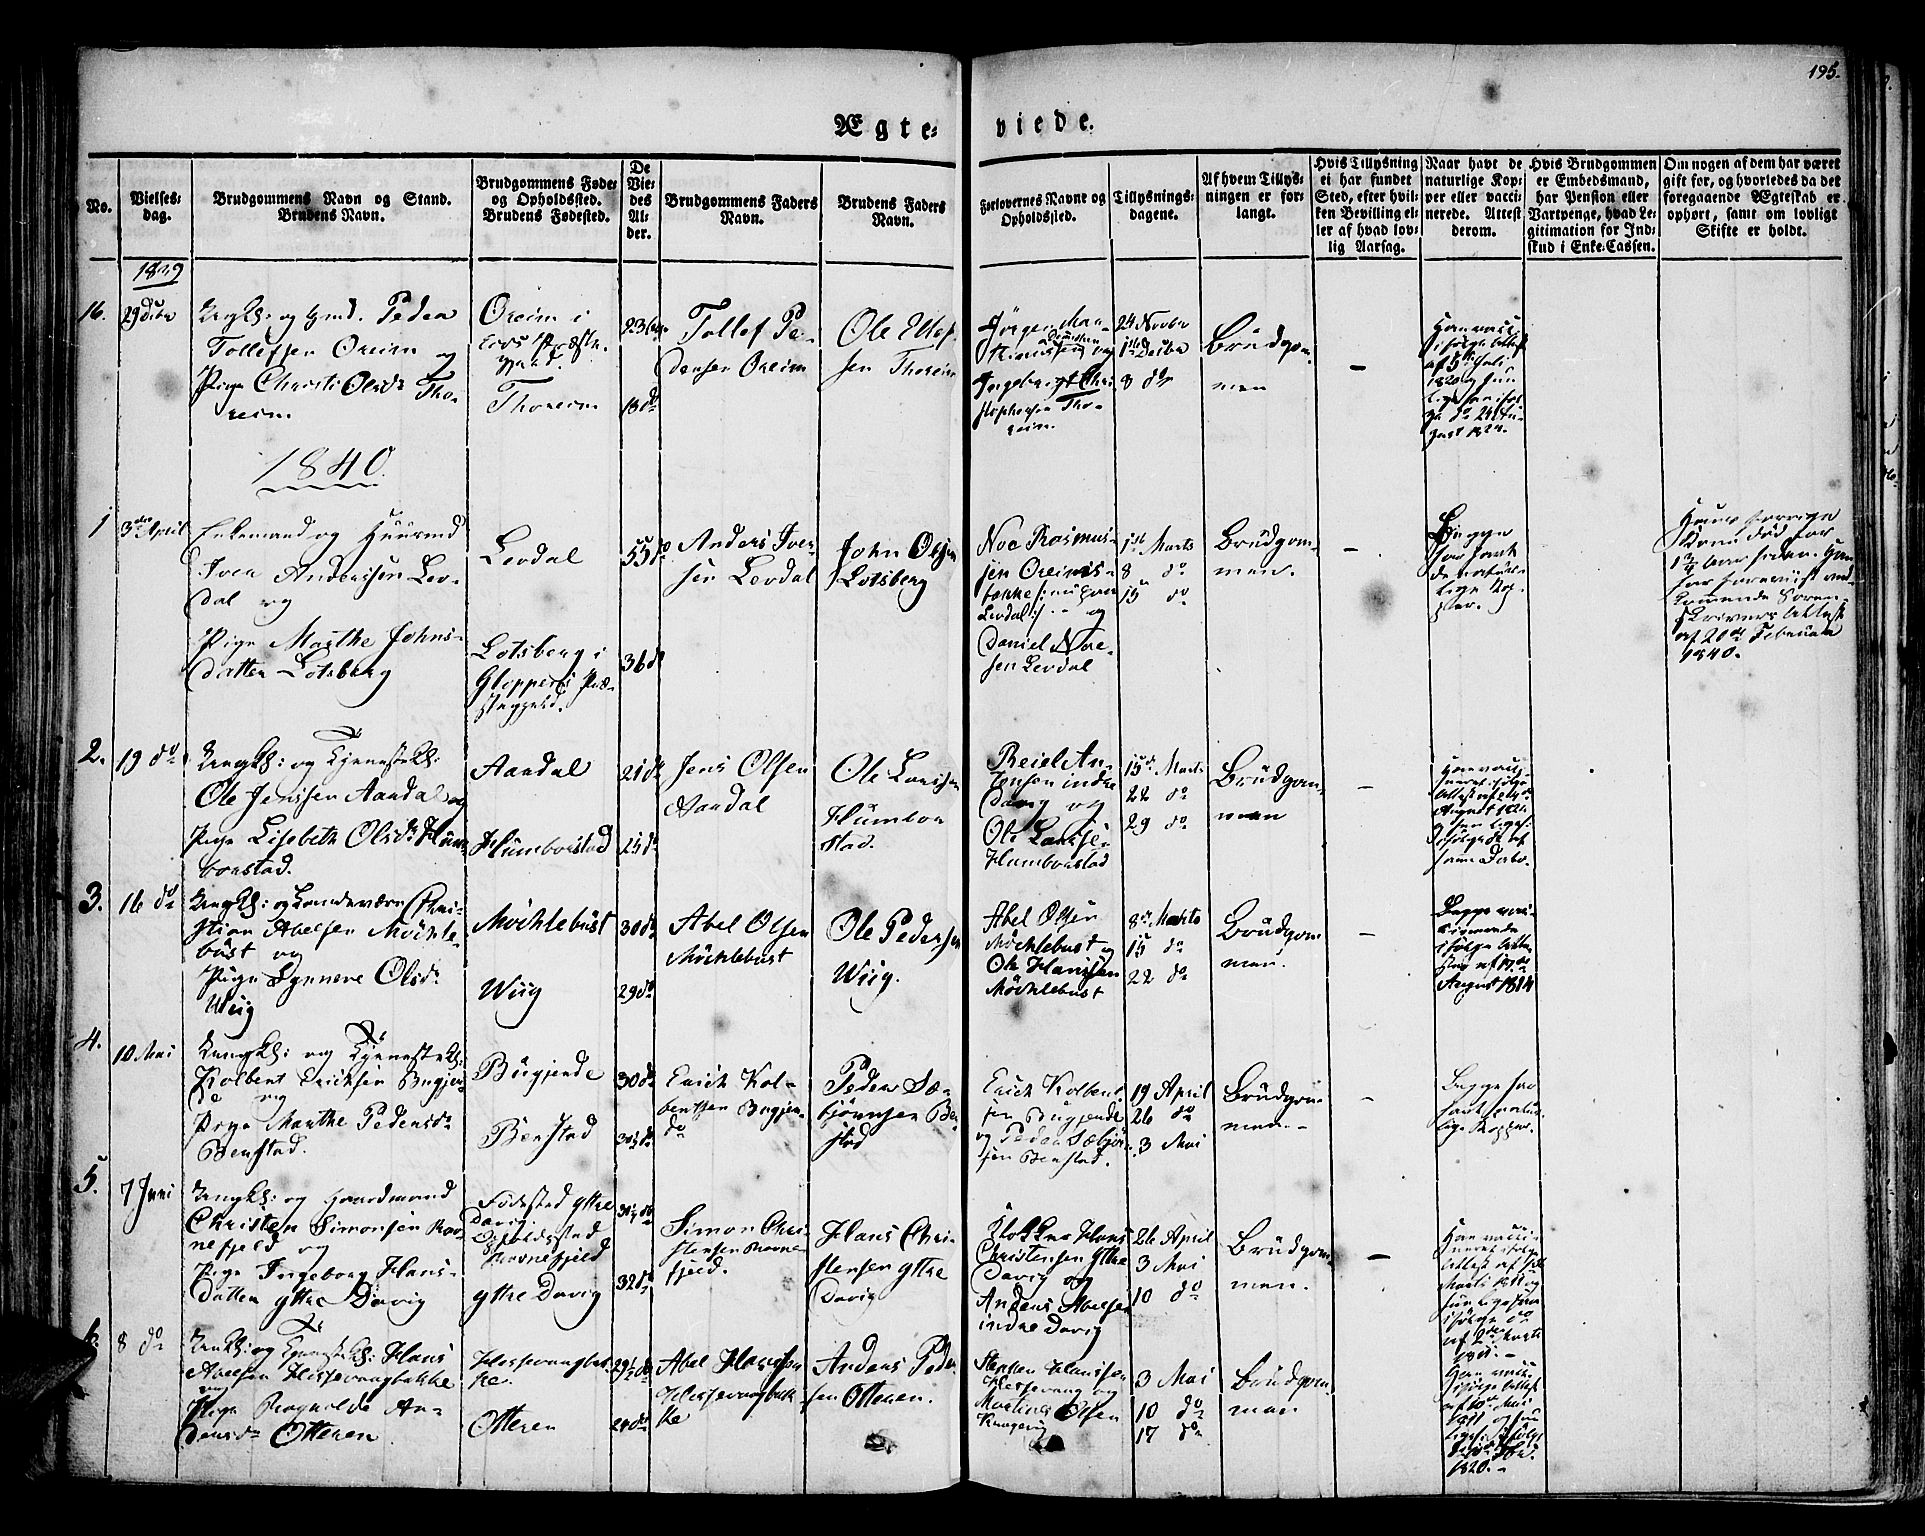 195.
Ægte-
viede.
No.
Vielses-
dag.
Brudgommens Navn og Stand.
Brudens Navn.
Brudgommens Føde-
og Opholdssted.
Brudens Fødested.
De
Vie-
des
Al-
der.
Brudgommens Faders
Navn.
Brudens Faders
Navn.
Forlovernes Navne og
Opholdssted.
Tillysnings-
dagene.
Af hvem Tillys-
ningen er for-
langt.
Hvis Tillysning
ei har fundet
Sted, efter hvil-
ken Bevilling el-
ler af hvad lov-
lig Aarsag.
Naar havt de
naturlige Kop-
per eller vacci-
nerede. Attest
derom.
Hvis Brudgommen
er Embedsmand,
har Pension eller
Vartpenge, hvad Le-
gitimation for Ind-
skud i Enke-Cassen.
Om nogen af dem har været
gift før, og hvorledes da det
foregaaende Ægteskab er
ophørt, samt om lovligt
Skifte er holdt.
1839
16.
Tollefsen Oreim og
Pige Christi Olsdr Tho-
reim
Oreim i
Thoreim
23
18 do
Tollef Pe-
dersen Oreim
Ole Ellef-
sen Thoreim
24 Novbr
8 do
Brudgom-
men
1840
1
3die April
Enkemand og Huusmd
Iver Andersen Lev-
dal og
Pige Marthe Johns-
datter Lotsberg
Levdal
Lotsberg i
Gloppens Præ-
stegjeld.
55 do
36 do
Anders Iver-
sen Levdal
John Olsen
Lotsberg
Noe Rasmus-
sen Oreims-
Levdal og
Daniel Noe-
sen Levdal
1ste Marts
8 do
15 do
Brudgom-
men.
Begge
har havt
de natur-
lige Kop-
per.
Hans forrige
Kone død for
af 20de Februar
1840.
2.
19 do
Ungk: og Tjenestek:
Ole Jenssen Aandal og
Pige Lisebeth Olsdr Hum-
borstad.
Aandal
Humborstad
21 do
25 do
Jens Olsen
Aandal
Ole Larssen
Humbor
stad.
Reiel An-
dersen indre
Davig og
Ole Larssen
Humborstad
15de Marts
22 do
29 do
Brudgom-
men
3.
16 do
Ungk: og Landeværn Chri-
stian Abelsen Möchle-
bust og
Pige Synneve Olsdr
Wiig
Möchlebust
Wiig
30 do
29 do
Abel Olsen
Möchlebust
Ole Pedersen
Wiig.
Abel Olsen
Möchlebust og
Ole Hanssen
Möchlebust
8de Marts
15 do
22 do
Brudgom
men.
Begge vac-
cinerede
ifølge Atte-
ster af 19de
August 1814
4.
10 Mai
Ungk: og Tjenestek:
Kolbent Ericksen Bugjer-
de og
Pige Marthe Pedersdr
Benstad.
Bugjerde
Benstad
30 do
30½ do
Erick Kol-
bentsen Bugjer-
de
Peder Sæ-
björnsen Ben
stad
Erick Kolbent-
sen Bugjerde
og Peder Sæbjörn-
sen Benstad.
19 April
26 do
3 Mai
Brudgom-
men.
Begge har
havt natur-
lige Kopper.
5.
7 Juni
Ungk: og Gaardmand
Christen Simonsen Rav-
nefjeld og
Pige Ingeborg Hans-
datter ytre Davig
Fødested ytre
Davig
Opholdssted
Ravnefjeld
ytre Davig
32 do
Simon Chri-
stensen Ravne-
fjeld.
Hans Chri-
stensen ytre
Davig
Klokker Hans
Christensen ytre
Davig og
Anders Abelsen
indre Davig
26 April
3 Mai
10 do
Brudgom-
men.
6.
8 do
Ungk: og Tjenestek: Hans
Abelsen Hessevaagbakke
og
Pige Ragnilde An-
dersdr Otteren
Hessevaagbak
ke.
Otteren
29½ do
24 do
Abel Hanssen
Hessevaagbak-
ke
Anders Peder-
sen Otteren.
Steffen Hanssen
Hessevaag og
Martinus Olsen
3 Mai
10 do
17 do
Brudgom-
men
1820.